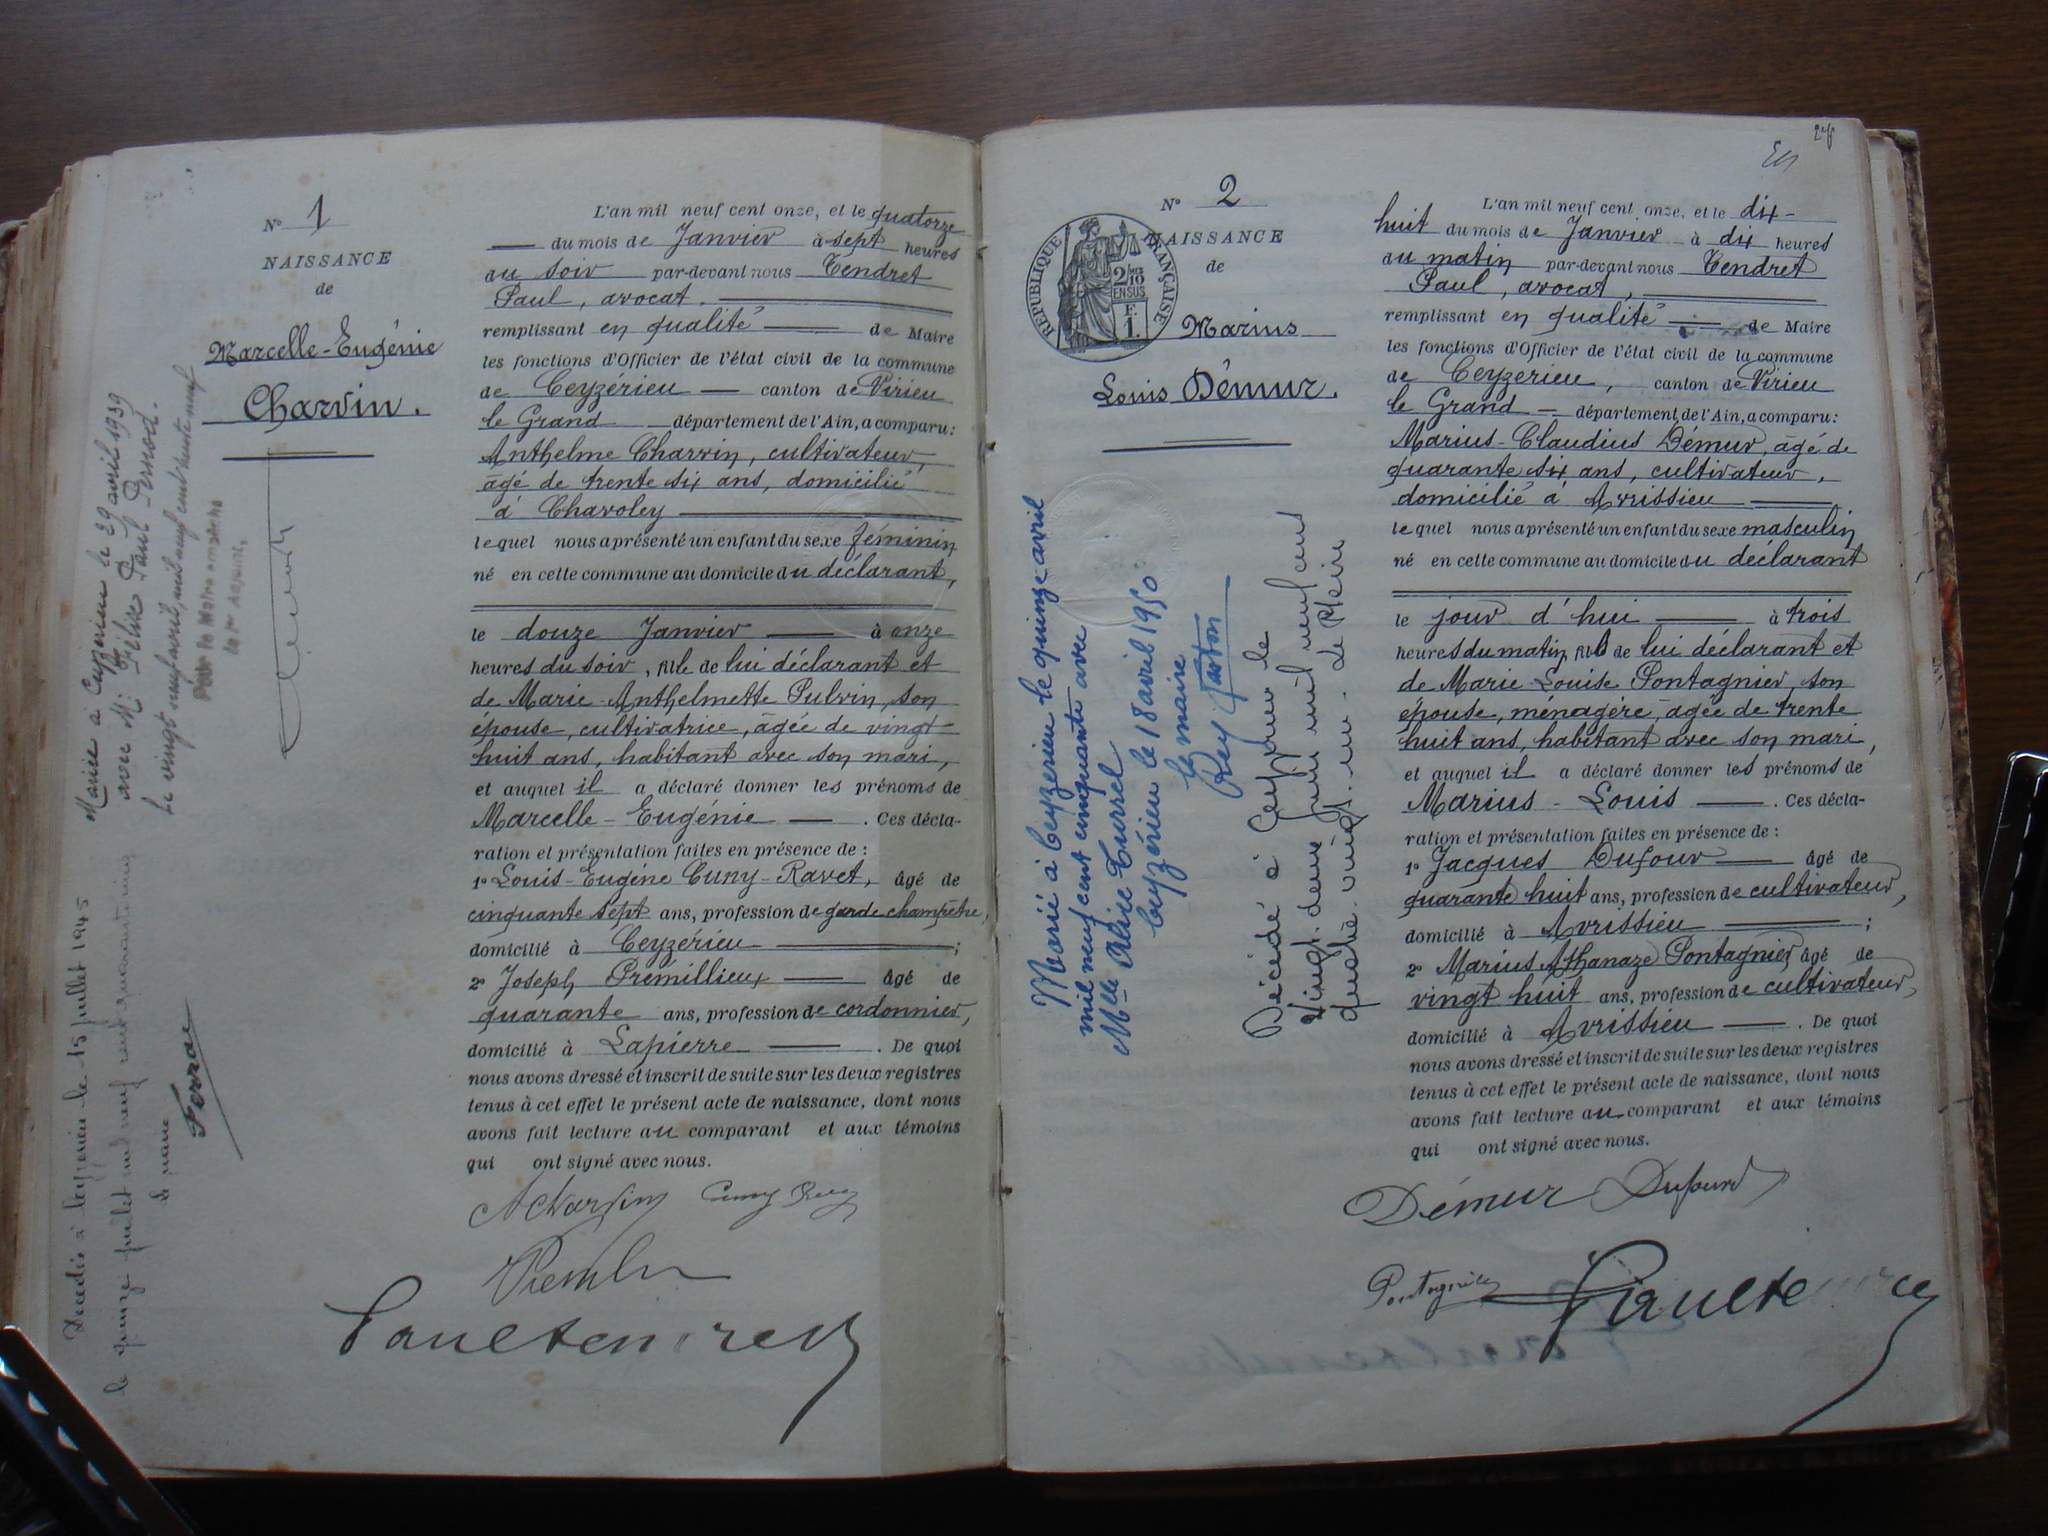 N° 1
NAISSANCE
de
Marcelle-Eugénie
Charvin.
L'an mil neuf cent onze, et le quatorze
du mois de Janvier à sept heures
au soir par-devant nous Tendret
Paul, avocat.
remplissant en qualité de Maire
les fonctions d'Officier de l'état civil de la commune
de Ceyzérieu canton de Virieu
le Grand département de l'Ain, a comparu:
Anthelme Charvin, cultivateur,
âgé de trente six ans, domicilié
à Chavoley
lequel nous a présenté un enfant du sexe féminin
né en cette commune au domicile du déclarant,
le douze Janvier à onze
heures du soir, fille de lui déclarant et
de Marie-Anthelmette Pulvin, son
épouse, cultivatrice, âgée de vingt
huit ans, habitant avec son mari,
et auquel il a déclaré donner les prénoms de
Marcelle-Eugénie. Ces décla-
ration et présentation faites en présence de :
1° Louis-Eugène Cuny-Ravet, âgé de
cinquante sept ans, profession de garde champêtre,
domicilié à Ceyzérieu ;
2° Joseph Prémillieux âgé de
quarante ans, profession de cordonnier,
domicilié à Lapierre. De quoi
nous avons dressé et inscrit de suite sur les deux registres
tenus à cet effet le présent acte de naissance, dont nous
avons fait lecture au comparant et aux témoins
qui ont signé avec nous.
ACharvin
Paul Tendret
Mariée à Ceyzérieu le 29 avril 1939
avec Mr Félix Paul Pernod.
Le vingt neuf avril, mil neuf cent trente neuf
Pour le Maire empêché
le 1er Adjoint,
Décédée à Ceyzérieu le 15 juillet 1945
le quinze juillet mil neuf cent quarante cinq
le maire
Ferrae
N° 2
NAISSANCE
de
REPUBLIQUE FRANÇAISE
2/10
EN SUS
F.
1.
Marius
Louis Démur.
L'an mil neuf cent onze, et le dix-
huit du mois de Janvier à dix heures
du matin par-devant nous Tendret
Paul, avocat,
remplissant en qualité de Maire
les fonctions d'Officier de l'état civil de la commune
de Ceyzerieu, canton de Virieu
le Grand département de l'Ain, a comparu:
Marius-Claudius Démur, âgé de
quarante six ans, cultivateur,
domicilié à Avrissieu
lequel nous a présenté un enfant du sexe masculin
né en cette commune au domicile du déclarant
le jour d'hui à trois
heures du matin, fils de lui déclarant et
de Marie Louise Pontagnier, son
épouse, ménagère, âgée de trente
huit ans, habitant avec son mari,
et auquel il a déclaré donner les prénoms de
Marius-Louis. Ces décla-
ration et présentation faites en présence de :
1° Jacques Dufour âgé de
quarante huit ans, profession de cultivateur,
domicilié à Avrissieu ;
2° Marius Athanaze Pontagnier, âgé de
vingt huit ans, profession de cultivateur,
domicilié à Avrissieu. De quoi
nous avons dressé et inscrit de suite sur les deux registres
tenus à cet effet le présent acte de naissance, dont nous
avons fait lecture au comparant et aux témoins
qui ont signé avec nous.
Démur Dufour
Pontagnier
Marié à Ceyzerieu le quinze avril
mil neuf cent cinquante avec
Mlle Alice Turrel
Ceyzérieu le 18 avril 1950.
le maire
Rey Gaston
Décédé à le
Vingt-deux Juin mil neuf cent
quatre-vingt-un. Le Maire